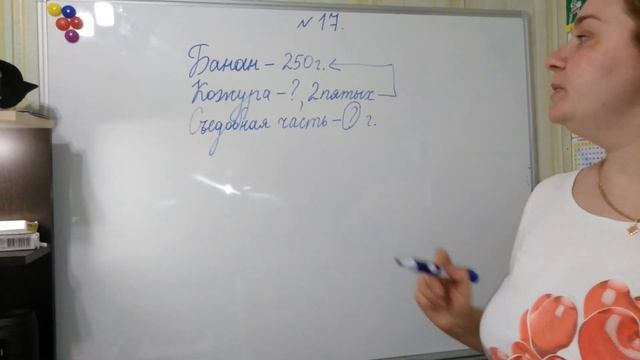 № 17.
Банан – 250г.
Кожура – ?, 2 пятых
Съедобная часть – ? г.